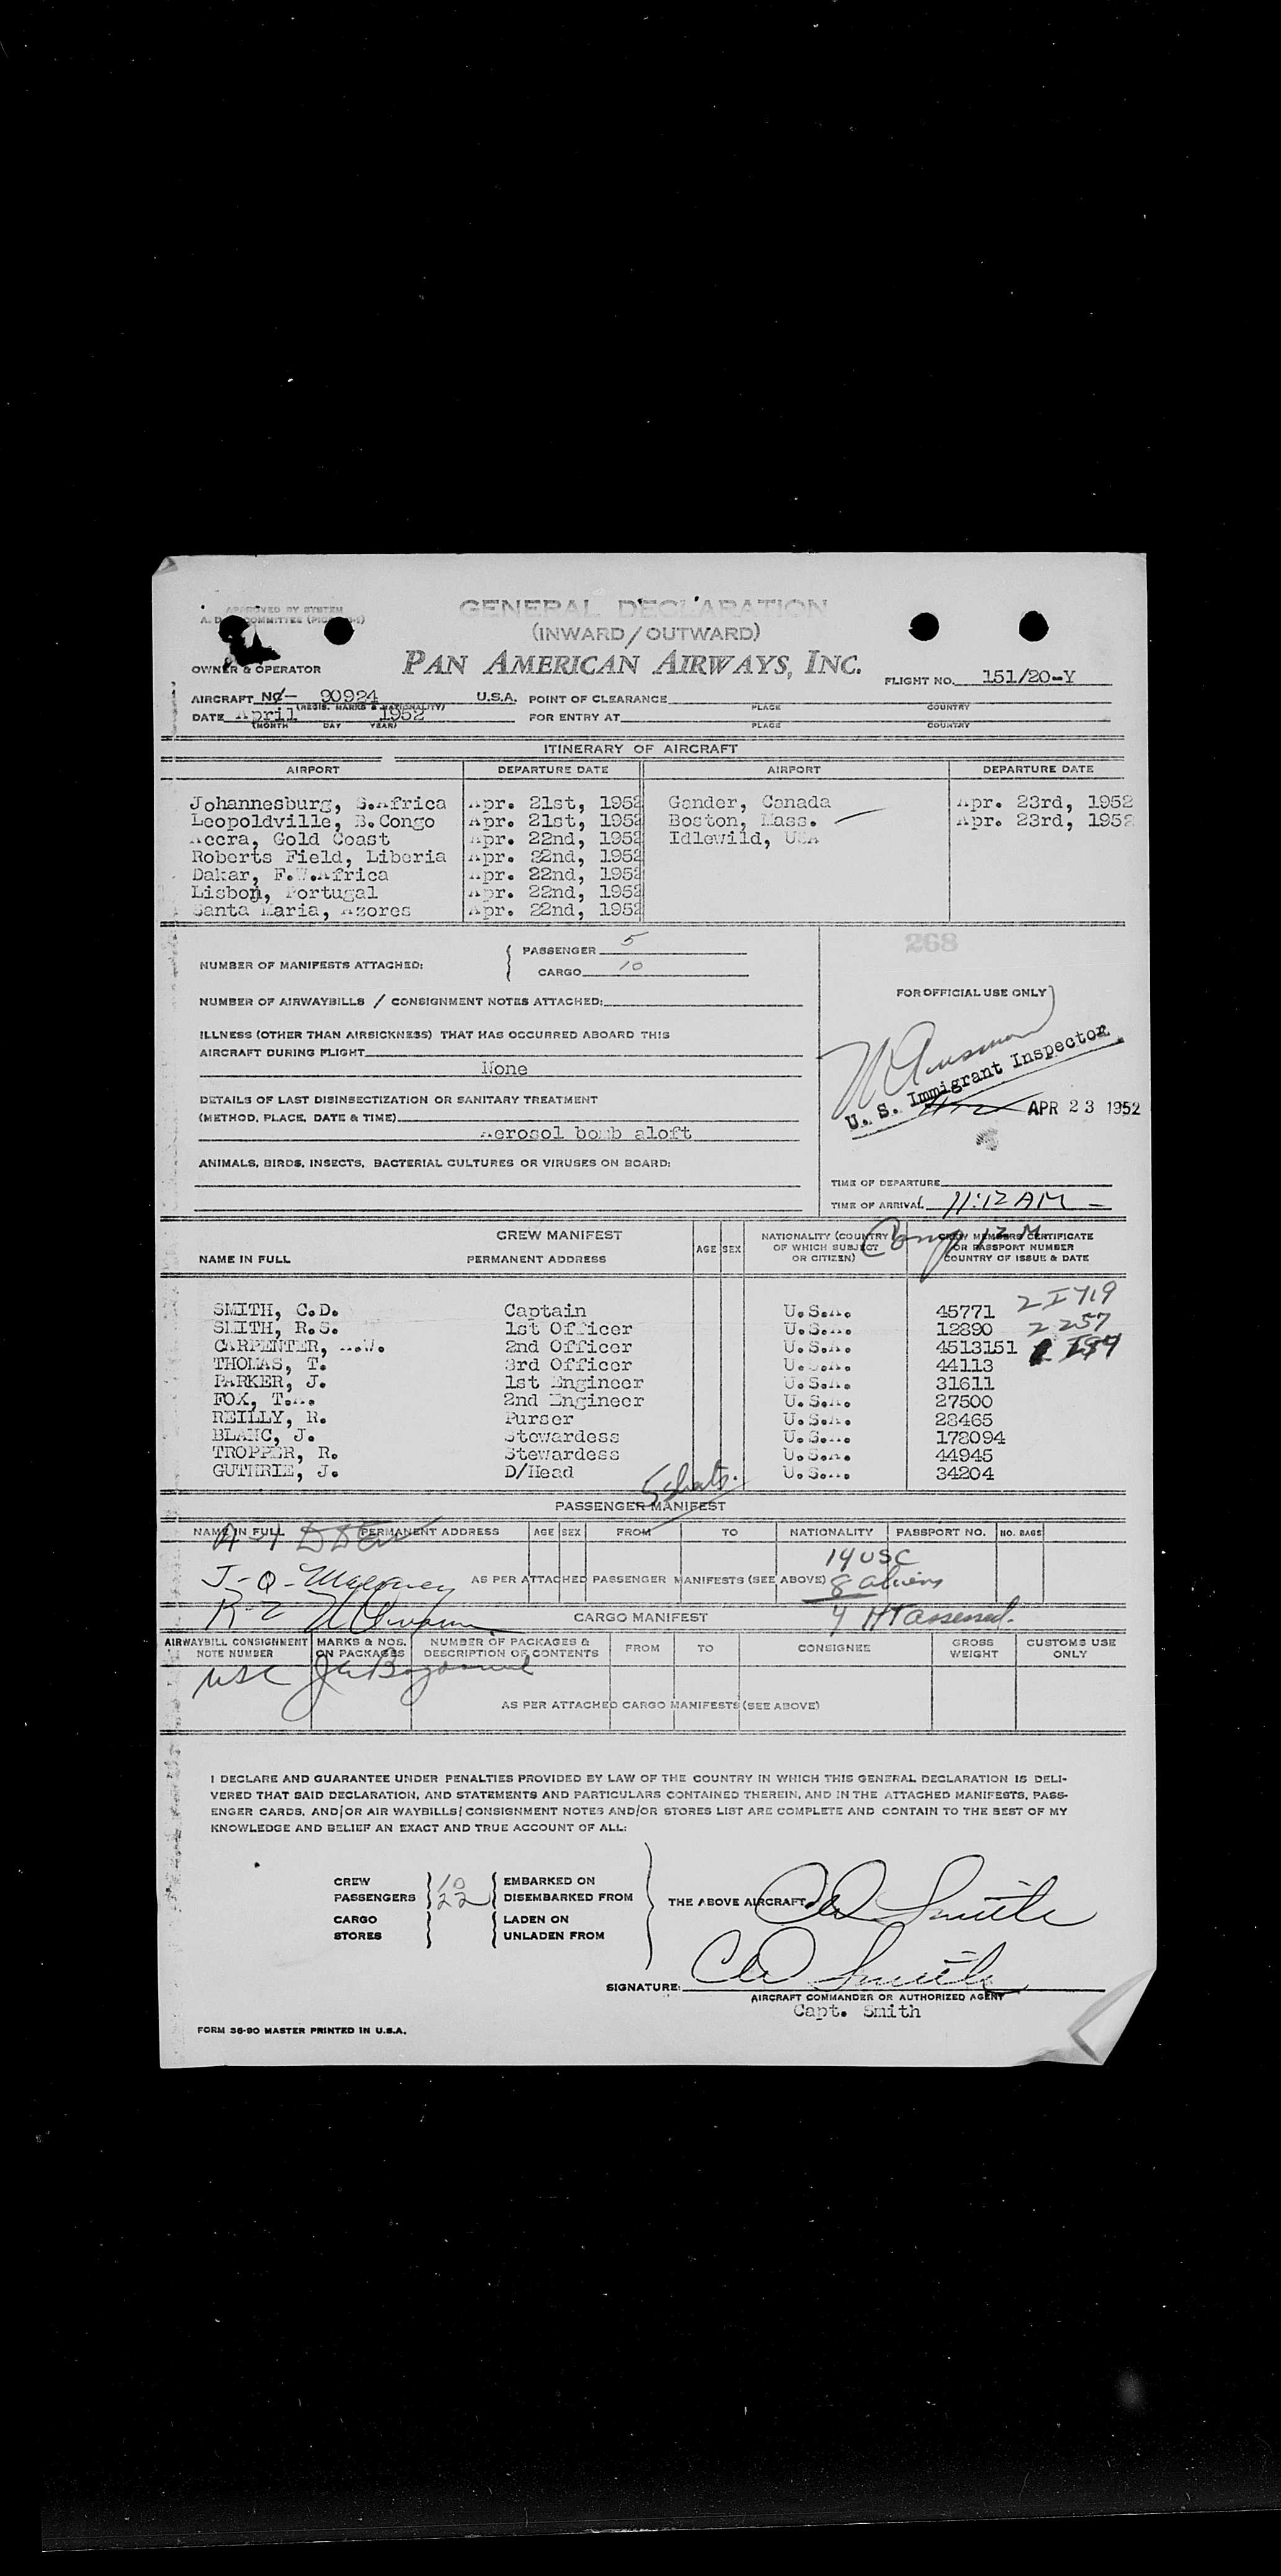 APPROVED BY SYSTEM
GENERAL DECLARATION
(INWARD/OUTWARD)
OWNER & OPERATOR PAN AMERICAN AIRWAYS, INC. FLIGHT NO. 151/20-Y
AIRCRAFT NC- 90924 U.S.A. POINT OF CLEARANCE
(REGIS. MARKS & NATIONALITY) PLACE COUNTRY
DATE April 1952 FOR ENTRY AT
(MONTH DAY YEAR) PLACE COUNTRY
ITINERARY OF AIRCRAFT
AIRPORT DEPARTURE DATE AIRPORT DEPARTURE DATE
Johannesburg, S.Africa Apr. 21st, 1952 Gander, Canada Apr. 23rd, 1952
Leopoldville, B.Congo Apr. 21st, 1952 Boston, Mass. Apr. 23rd, 1952
Accra, Gold Coast Apr. 22nd, 1952 Idlewild, USA
Roberts Field, Liberia Apr. 22nd, 1952
Dakar, F.W.Africa Apr. 22nd, 1952
Lisbon, Portugal Apr. 22nd, 1952
Santa Maria, Azores Apr. 22nd, 1952
268
NUMBER OF MANIFESTS ATTACHED:
PASSENGER 5
CARGO 10
FOR OFFICIAL USE ONLY
NUMBER OF AIRWAYBILLS / CONSIGNMENT NOTES ATTACHED:
ILLNESS (OTHER THAN AIRSICKNESS) THAT HAS OCCURRED ABOARD THIS
AIRCRAFT DURING FLIGHT
None
DETAILS OF LAST DISINSECTIZATION OR SANITARY TREATMENT
(METHOD, PLACE, DATE & TIME)
Aerosol bomb aloft
U. S. Immigrant Inspector
APR 23 1952
ANIMALS, BIRDS, INSECTS, BACTERIAL CULTURES OR VIRUSES ON BOARD:
TIME OF DEPARTURE
TIME OF ARRIVAL 11:12 AM
CREW MANIFEST
NAME IN FULL PERMANENT ADDRESS AGE SEX NATIONALITY (COUNTRY OF WHICH SUBJECT OR CITIZEN) CREW MEMBERS CERTIFICATE OR PASSPORT NUMBER COUNTRY OF ISSUE & DATE
SMITH, C.D. Captain U.S.A. 45771
SMITH, R.S. 1st Officer U.S.A. 12890 2 257
CARPENTER, 2nd Officer U.S.A. 4513151
THOMAS, T. 3rd Officer U.S.A. 44113
PARKER, J. 1st Engineer U.S.A. 31611
FOX, 2nd Engineer U.S.A. 27500
REILLY, R. Purser U.S.A. 28465
BLANC, J. Stewardess U.S.A. 178094
TROPPER, R. Stewardess U.S.A. 44945
GUTHRIE, J. D/Head U.S.A. 34204
PASSENGER MANIFEST
NAME IN FULL PERMANENT ADDRESS AGE SEX FROM TO NATIONALITY PASSPORT NO. NO. BAGS
14 USC
AS PER ATTACHED PASSENGER MANIFESTS (SEE ABOVE) 8 aliens
4 HT assessed.
CARGO MANIFEST
AIRWAYBILL CONSIGNMENT NOTE NUMBER MARKS & NOS. ON PACKAGES NUMBER OF PACKAGES & DESCRIPTION OF CONTENTS FROM TO CONSIGNEE GROSS WEIGHT CUSTOMS USE ONLY
AS PER ATTACHED CARGO MANIFESTS (SEE ABOVE)
I DECLARE AND GUARANTEE UNDER PENALTIES PROVIDED BY LAW OF THE COUNTRY IN WHICH THIS GENERAL DECLARATION IS DELI-
VERED THAT SAID DECLARATION, AND STATEMENTS AND PARTICULARS CONTAINED THEREIN, AND IN THE ATTACHED MANIFESTS, PASS-
ENGER CARDS, AND/OR AIR WAYBILLS/CONSIGNMENT NOTES AND/OR STORES LIST ARE COMPLETE AND CONTAIN TO THE BEST OF MY
KNOWLEDGE AND BELIEF AN EXACT AND TRUE ACCOUNT OF ALL:
CREW 10 EMBARKED ON
PASSENGERS 22 DISEMBARKED FROM THE ABOVE AIRCRAFT CD Smith
CARGO LADEN ON
STORES UNLADEN FROM
SIGNATURE: CD Smith
AIRCRAFT COMMANDER OR AUTHORIZED AGENT
Capt. Smith
FORM 36-90 MASTER PRINTED IN U.S.A.